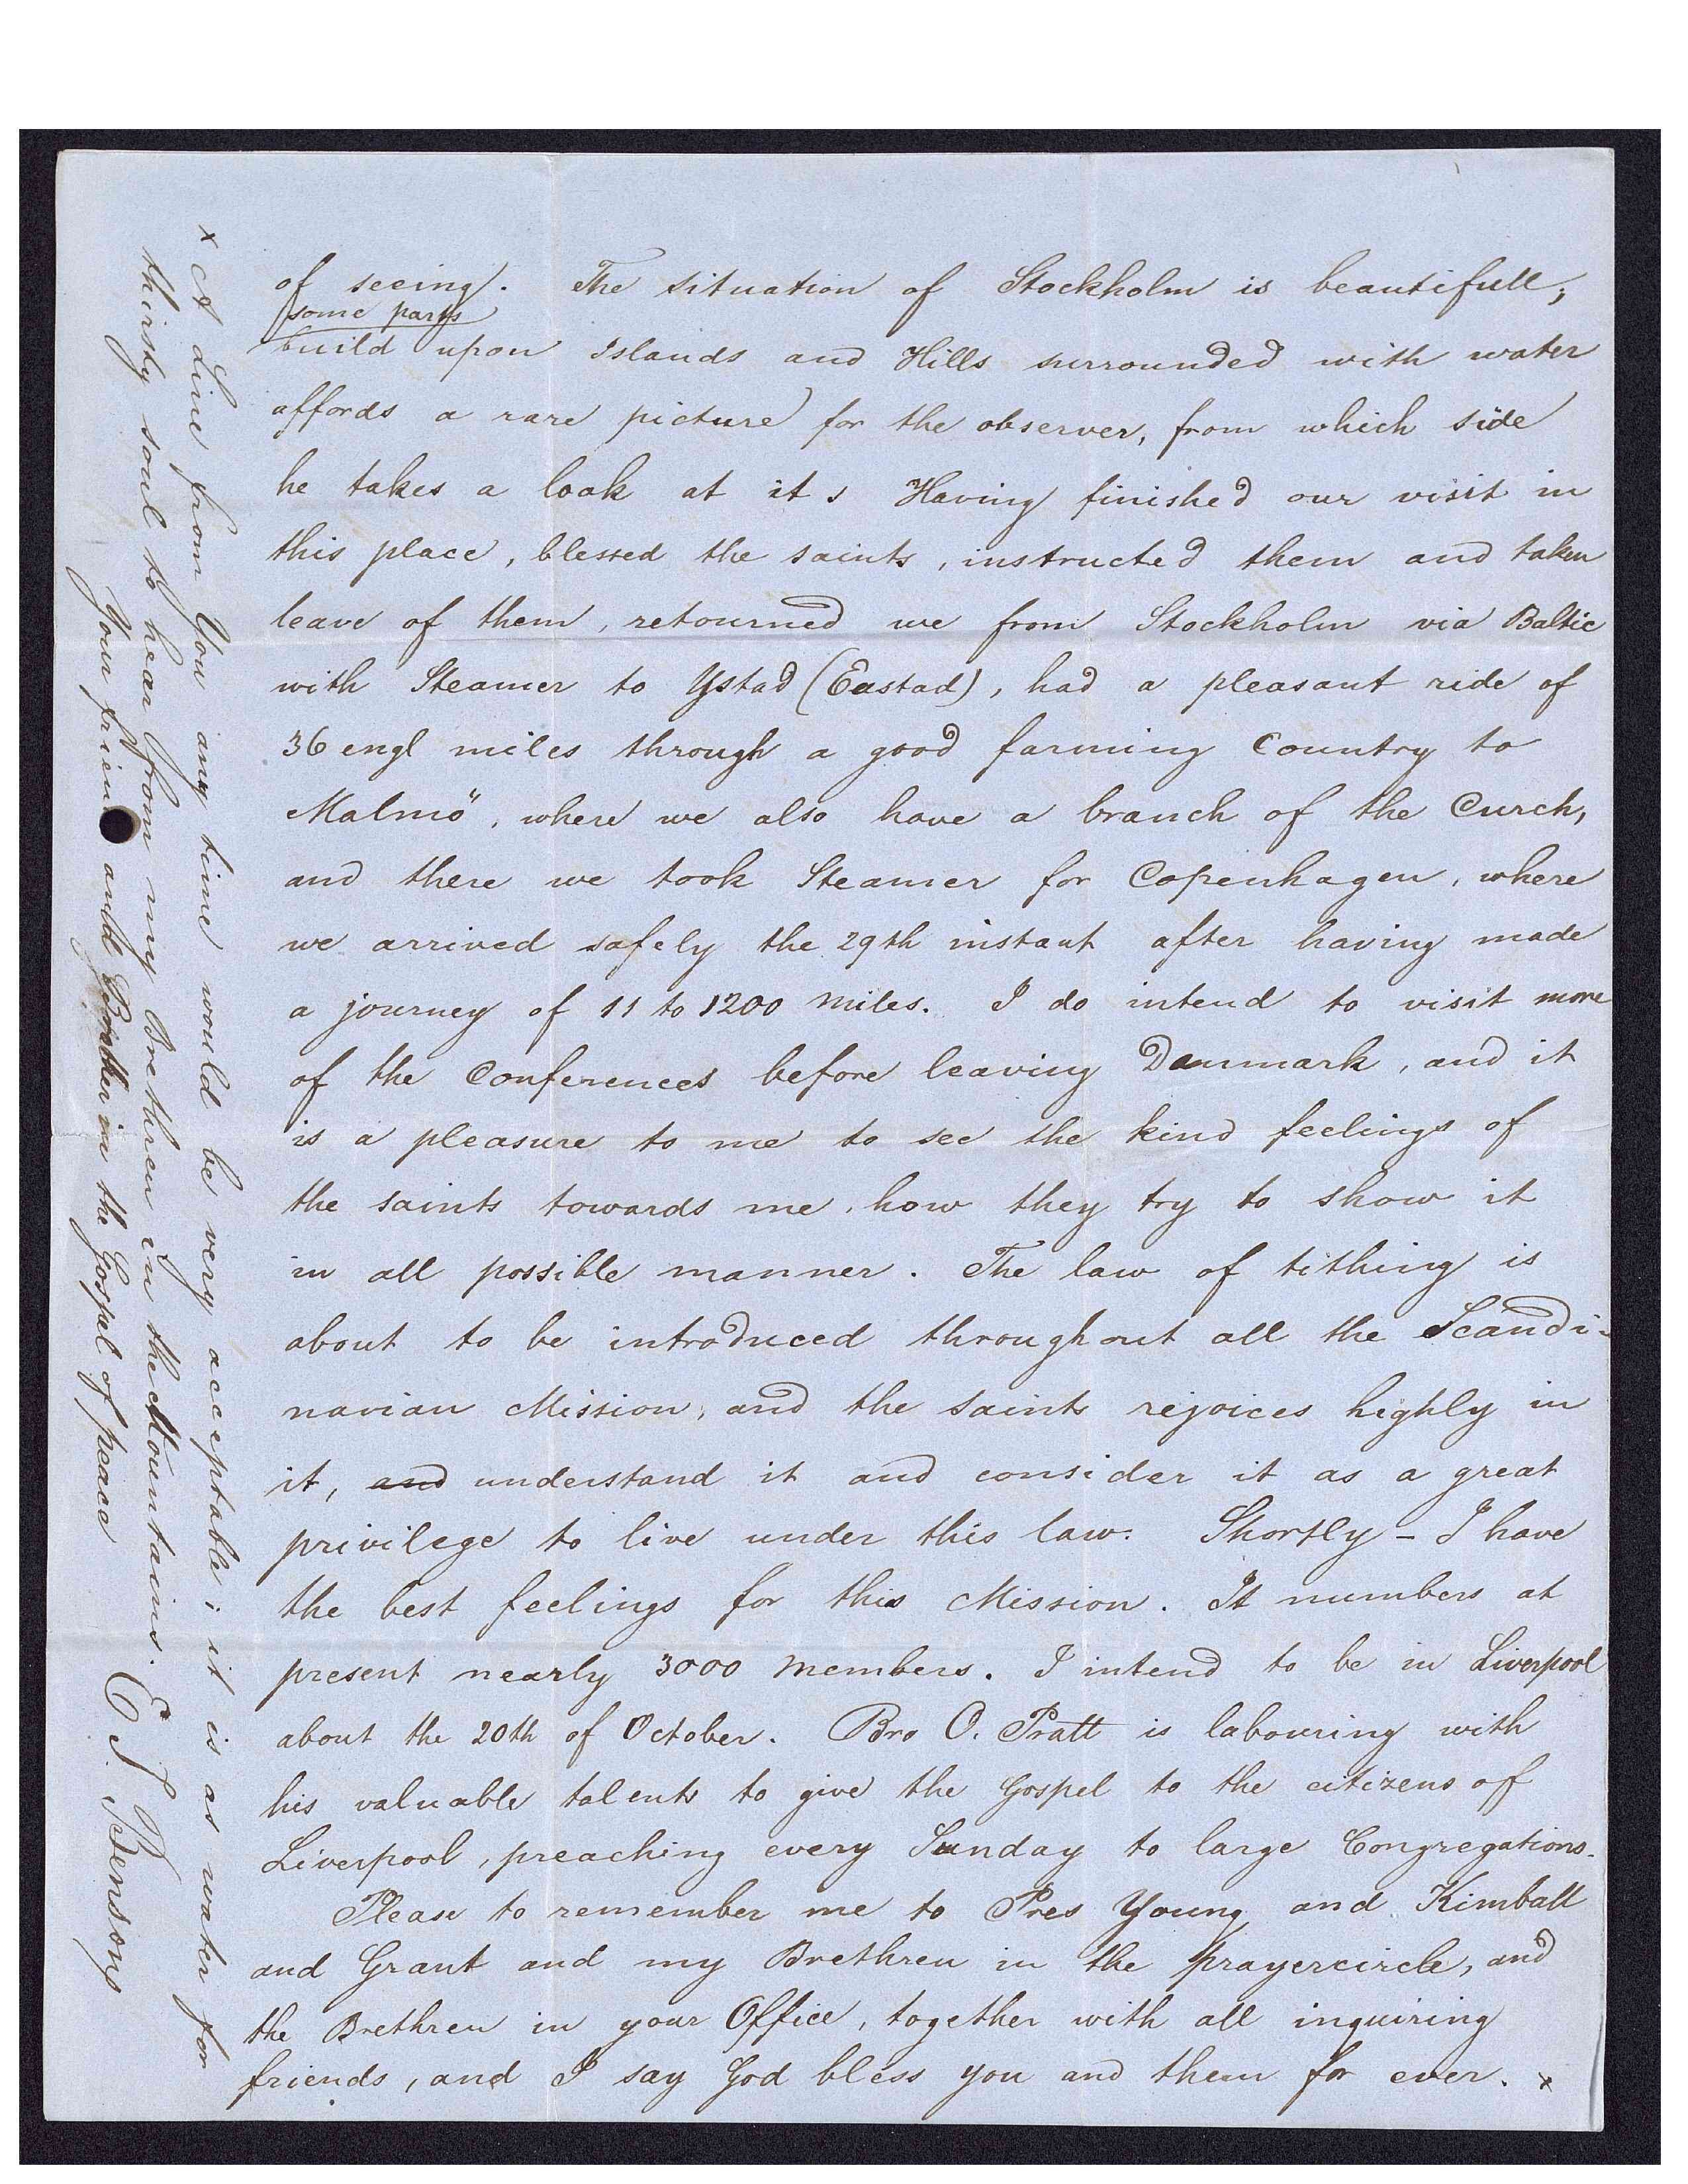 of seeing. The situation of Stockholm is beautifull;
some parts
build upon Islands and Hills surrounded with water
affords a rare picture for the observer, from which side
he takes a look at it. Having finished our visit in
this place, blessed the saints, instructed them and taken
leave of them, retourned we from Stockholm via Baltic
with Steamer to Ystad (Eastad), had a pleasant ride of
36 engl miles through a good farming Country to
Malmö, where we also have a branch of the Curch,
and there we took Steamer for Copenhagen, where
we arrived safely the 29th instant after having made
a journey of 11 to 1200 miles. I do intend to visit more
of the Conferences before leaving Danmark, and it
is a pleasure to me to see the kind feelings of
the saints towards me, how they try to show it
in all possible manner. The law of tithing is
about to be introduced throughout all the Scandi-
navian Mission, and the saints rejoices highly in
it, and understand it and consider it as a great
privilege to live under this law. Shortly - I have
the best feelings for this Mission. It numbers at
present nearly 3000 members. I intend to be in Liverpool
about the 20th of October. Bro O. Pratt is labouring with
his valuable talents to give the Gospel to the citizens off
Liverpool, preaching every Sunday to large Congregations.
Please to remember me to Pres Young and Kimball
and Grant and my Brethren in the prayercircle, and
the Brethren in your Office, together with all inquiring
friends, and I say God bless you and them for ever. x
x A line from You any time would be very acceptable; it is as water for
thirsty soul to hear from my Brethren in the Mountains.
Your friend and Brother in the Gospel of peace
E T Benson